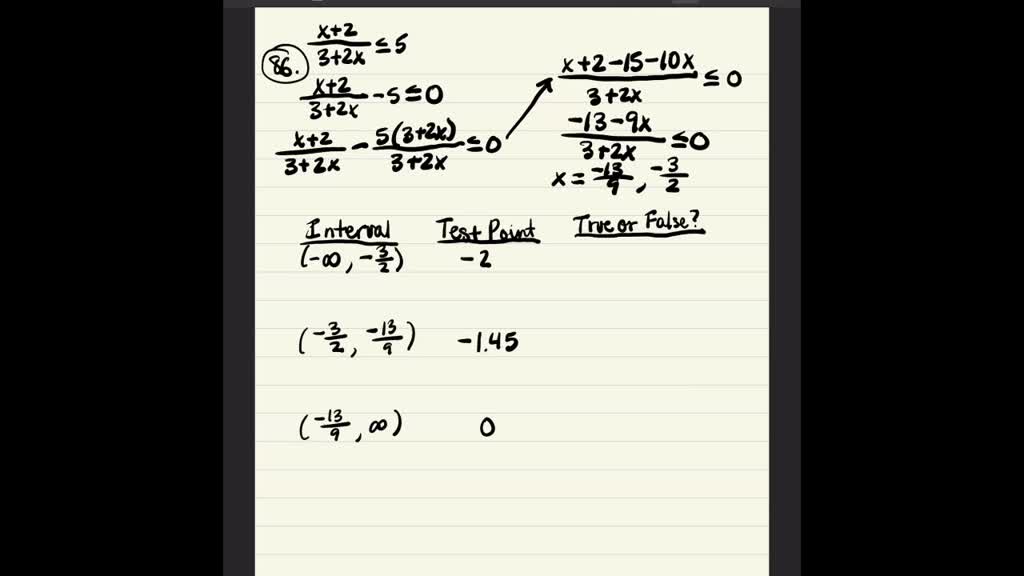 86.
x+2/3+2x ≤ 5
x+2/3+2x - 5 ≤ 0
x+2/3+2x - 5(3+2x)/3+2x ≤ 0
x+2-15-10x/3+2x ≤ 0
-13-9x/3+2x ≤ 0
x = -13/9, -3/2
Interval Test Point True or False?
(-∞, -3/2) -2
(-3/2, -13/9) -1.45
(-13/9, ∞) 0